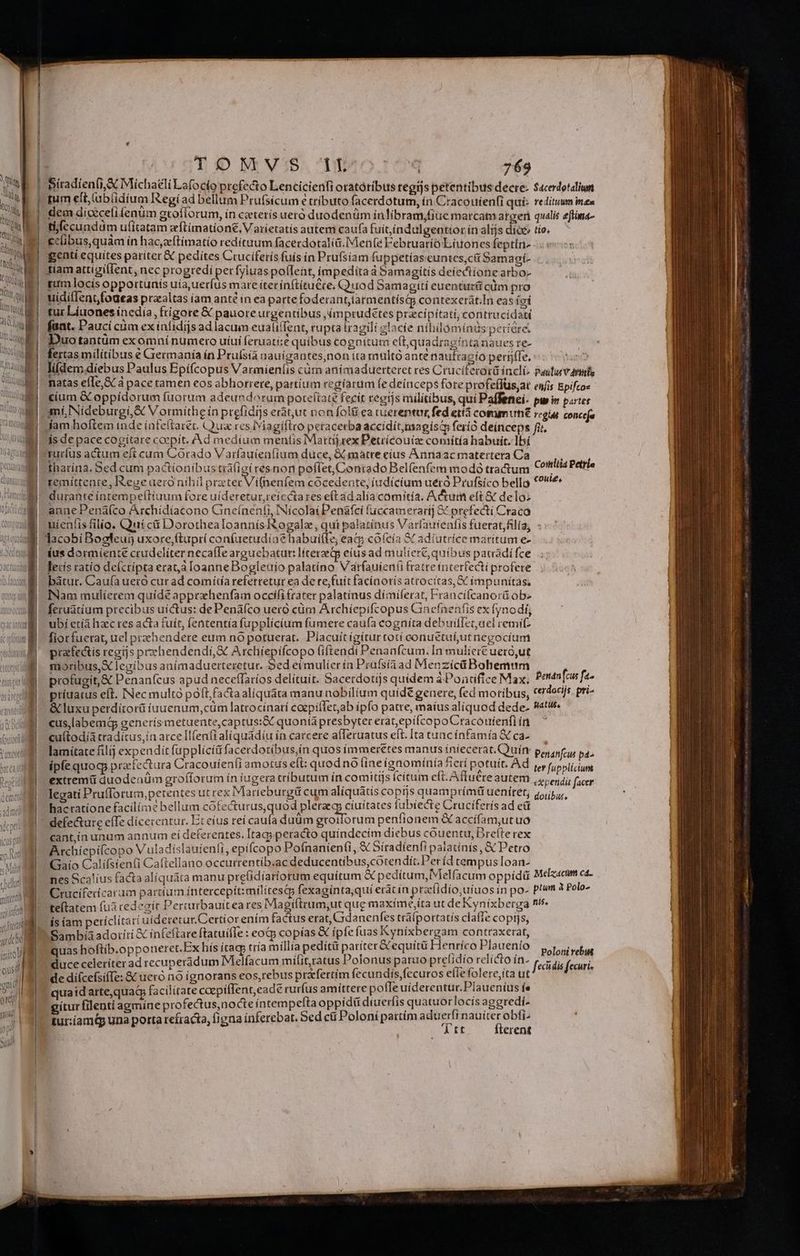 TOMVS II. 769
Siradiensi, & Michaëli Lasocio præfecto Lenciciensi oratoribus regijs petentibus decre-
tum est, subsidium Regi ad bellum Prussicum é tributo sacerdotum, in Cracouiensi qui-
dem diœcesi senûm grossorum, in cæteris uerò duodenûm in libram, siue marcam argen
ti, secundùm usitatam æstimationē, Varietatis autem causa fuit, indulgentior in alijs diœ-
cesibus, quàm in hac, æstimatio redituum sacerdotaliū. Mense Februario Liuones septin-
genti equites pariter & pedites Cruciferis suis in Prussiam suppetias euntes, cū Samagi-
tiam attigissent, nec progredi per syluas possent, impedita à Samagitis deiectione arbo-
rum locis opportunis uia, uersus mare iter instituêre. Quod Samagiti euenturū cùm pro
uidissent, foueas præaltas iam antè in ea parte foderant, sarmentisq; contexerāt. In eas igi
tur Liuones inedia, frigore & pauore urgentibus, imprudētes præcipitati, contrucidati
sunt. Pauci cùm ex insidijs ad lacum euasissent, rupta fragili glacie nihilominùs periêre.
Duo tantùm ex omni numero uiui seruati: è quibus cognitum est, quadraginta naues re-
fertas militibus è Germania in Prussiā nauigantes, non ita multò antè naufragio perijsse.
Iisdem diebus Paulus Episcopus Varmiensis cùm animaduerteret res Cruciferorū incli-
natas esse, & à pace tamen eos abhorrere, partium regiarum se deinceps fore professus, at
cium & oppidorum suorum adeundorum potestatē fecit regijs militibus, qui Passenei-
mi, Nideburgi, & Vormithe in præsidijs erāt, ut non solū ea tuerentur, sed etiā communē
iam hostem inde infestarēt. Quæ res Magistro peracerba accidit, magisq; ferio deinceps
is de pace cogitare cœpit. Ad mediam mensis Martij rex Petricouiæ comitia habuit. Ibi
rursus actum est cum Corado Varsauiensium duce, & matre eius Annaac matertera Ca
tharina. Sed cum pactionibus trāsigi res non posset, Conrado Belsensem modò tractum
remittente, Rege uerò nihil præter Visnensem cōcedente, iudicium uerò Prussico bello
durante intempestiuum fore uideretur, reiecta res est ad alia comitia. Actum est & de Io-
anne Penāsco Archidiacono Gnesnensi, Nicolai Penāsci succamerarij & præfecti Craco
uiensis filio. Qui cū Dorothea Ioannis Rogalæ, qui palatinus Varsauiensis fuerat, filia,
Iacobi Bogleuij uxore, stupri consuetudinē habuisse, eaq; cōscia & adiutrice maritum e-
ius dormientē crudeliter necasse arguebatur: literæq; eius ad mulierē, quibus patrādi sce
leris ratio descripta erat, à Ioanne Bogleuio palatino Varsauiensi fratre interfecti profere
bātur. Causa uerò cur ad comitia referretur ea de re, fuit facinoris atrocitas, & impunitas.
Nam mulierem quidē appræhensam occisi frater palatinus dimiserat, Franciscanorū ob-
seruātium precibus uictus: de Penāsco uerò cùm Archiepiscopus Gnesnensis ex synodi,
ubi etiā hæc res acta fuit, sententia supplicium sumere causa cognita debuisset, uel remis-
sior fuerat, uel præhendere eum nō potuerat. Placuit igitur toti conuētui, ut negocium
præfectis regijs præhendendi, & Archiepiscopo sistendi Penanscum. In mulierē uerò, ut
moribus, & legibus animaduerteretur. Sed ei mulier in Prussiā ad Menzicū Bohemum
profugit, & Penanscus apud necessarios delituit. Sacerdotijs quidem à Pontifice Max.
priuatus est. Nec multò pòst, facta aliquāta manu nobilium quidē genere, sed moribus,
& luxu perditorū iuuenum, cùm latrocinari cœpisset, ab ipso patre, maius aliquod dede-
cus, labemq; generis metuente, captus: & quoniā presbyter erat, episcopo Cracouiensi in
custodiā traditus, in arce Ilsensi aliquādiu in carcere asseruatus est. Ita tunc infamia & ca-
lamitate filij expendit suppliciū sacerdotibus, in quos immerētes manus iniecerat. Quin
ipse quoq; præfectura Cracouiensi amotus est: quod nō sine ignominia fieri potuit. Ad
extremū duodenûm grossorum in iugera tributum in comitijs scitum est. Affuêre autem
legati Prussorum, petentes ut rex Marieburgū cum aliquātis copijs quamprimū ueniret;
hac ratione facilimē bellum cōfecturus, quod pleræq; ciuitates subiectę Cruciferis ad eū
defecturę esse dicerentur. Et eius rei causa duûm grossorum pensionem & accisam, ut uo
cant, in unum annum ei deferentes. Itaq; peracto quindecim diebus cōuentu, Breste rex
Archiepiscopo Vuladislauiensi, episcopo Posnaniensi, & Siradiensi palatinis, & Petro
Gaio Calissiensi Castellano occurrentib. ac deducentibus, cōtendit. Per id tempus Ioan-
nes Scalius facta aliquāta manu præsidiariorum equitum & peditum, Melsacum oppidū
Cruciferīcarum partium intercepit: militesq; sexaginta, qui erāt in præsidio, uiuos in po-
testatem suā redegit Perturbauit ea res Magistrum, ut que maximè, ita ut de Kynixberga
is iam periclitari uideretur. Certior enim factus erat, Gdanenses trāsportatis classe copijs,
Sambiā adoriri & infestare statuisse: eoq; copias & ipse suas Kynixbergam contraxerat,
quas hostib. opponeret. Ex his itaq; tria millia peditū pariter & equitū Henrico Plauenio
duce celeriter ad recuperādum Melsacum misit, ratus Polonus paruo præsidio relicto in-
de discessisse: & uerò nō ignorans eos, rebus præsertim secundis, securos esse solere, ita ut
quaid arte, quaq; facilitate cœpissent, eadē rursus amittere posse uiderentur. Plauenius se
gitur silenti agmine profectus, nocte intempesta oppidū diuersis quatuor locis aggredi-
tur: iamq; una porta refracta, signa inferebat. Sed cū Poloni partim aduersi nauiter obsi-
Ttt sterent
Sacerdotalium
redituum inæ
qualis æstima-
tio.
Paulus Varmię
ensis Episcos
pus in partes
regias concese
sit.
Comitia Petric
couie.
Penanscus sa-
cerdotijs pri-
uatus.
Penanscus pa-
ter supplicium
expendit sacer
dotibus.
Melzacum ca-
ptum à Polo-
nis.
Poloni rebus
secūdis securi.